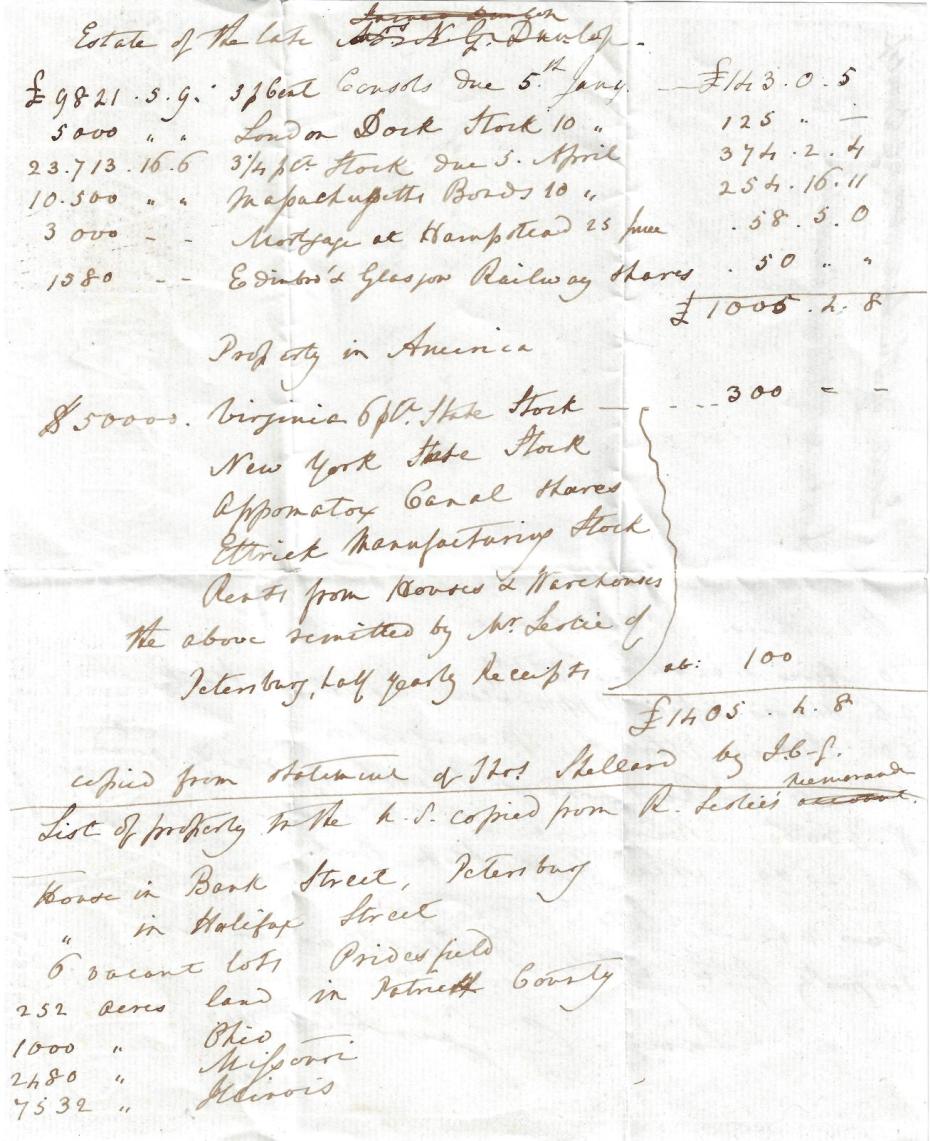 Estate of the late N. G. Dunlop.
£9821.5.9. 3 p Cent Consols due 5th Jany. — £143.0.5
5000 „ „ London Dock Stock 10 „ 125 „ —
23.713.16.6 3¼ pCt. Stock due 5. April 374.2.4
10.500 „ „ Massachusetts Bonds 10 „ 254.16.11
3 000 - - Mortgage at Hampstead 25 June . 58.5.0
1580 - - Edinbro' & Glasgow Railway Shares . 50 „ „
£1005.4.8
Property in America
$50000. Virginia 6 pCt. State Stock — - - - 300 - -
New York State Stock
Appomatox Canal Shares
Ettrick Manufacturing Stock
Rents from Houses & Warehouses
the above remitted by Mr. Leslie of
Petersburg, half yearly Receipts ab: 100
£1405.4.8
copied from statement of Thos. Shellard by J.C-G.
List of property in the U.S. copied from R. Leslie's memoranda
House in Bank Street, Petersburg
„ in Halifax Street
6 vacant lots Pridesfield
252 acres land in Patrick County
1000 „ Ohio
2480 „ Missouri
7532 „ Illinois